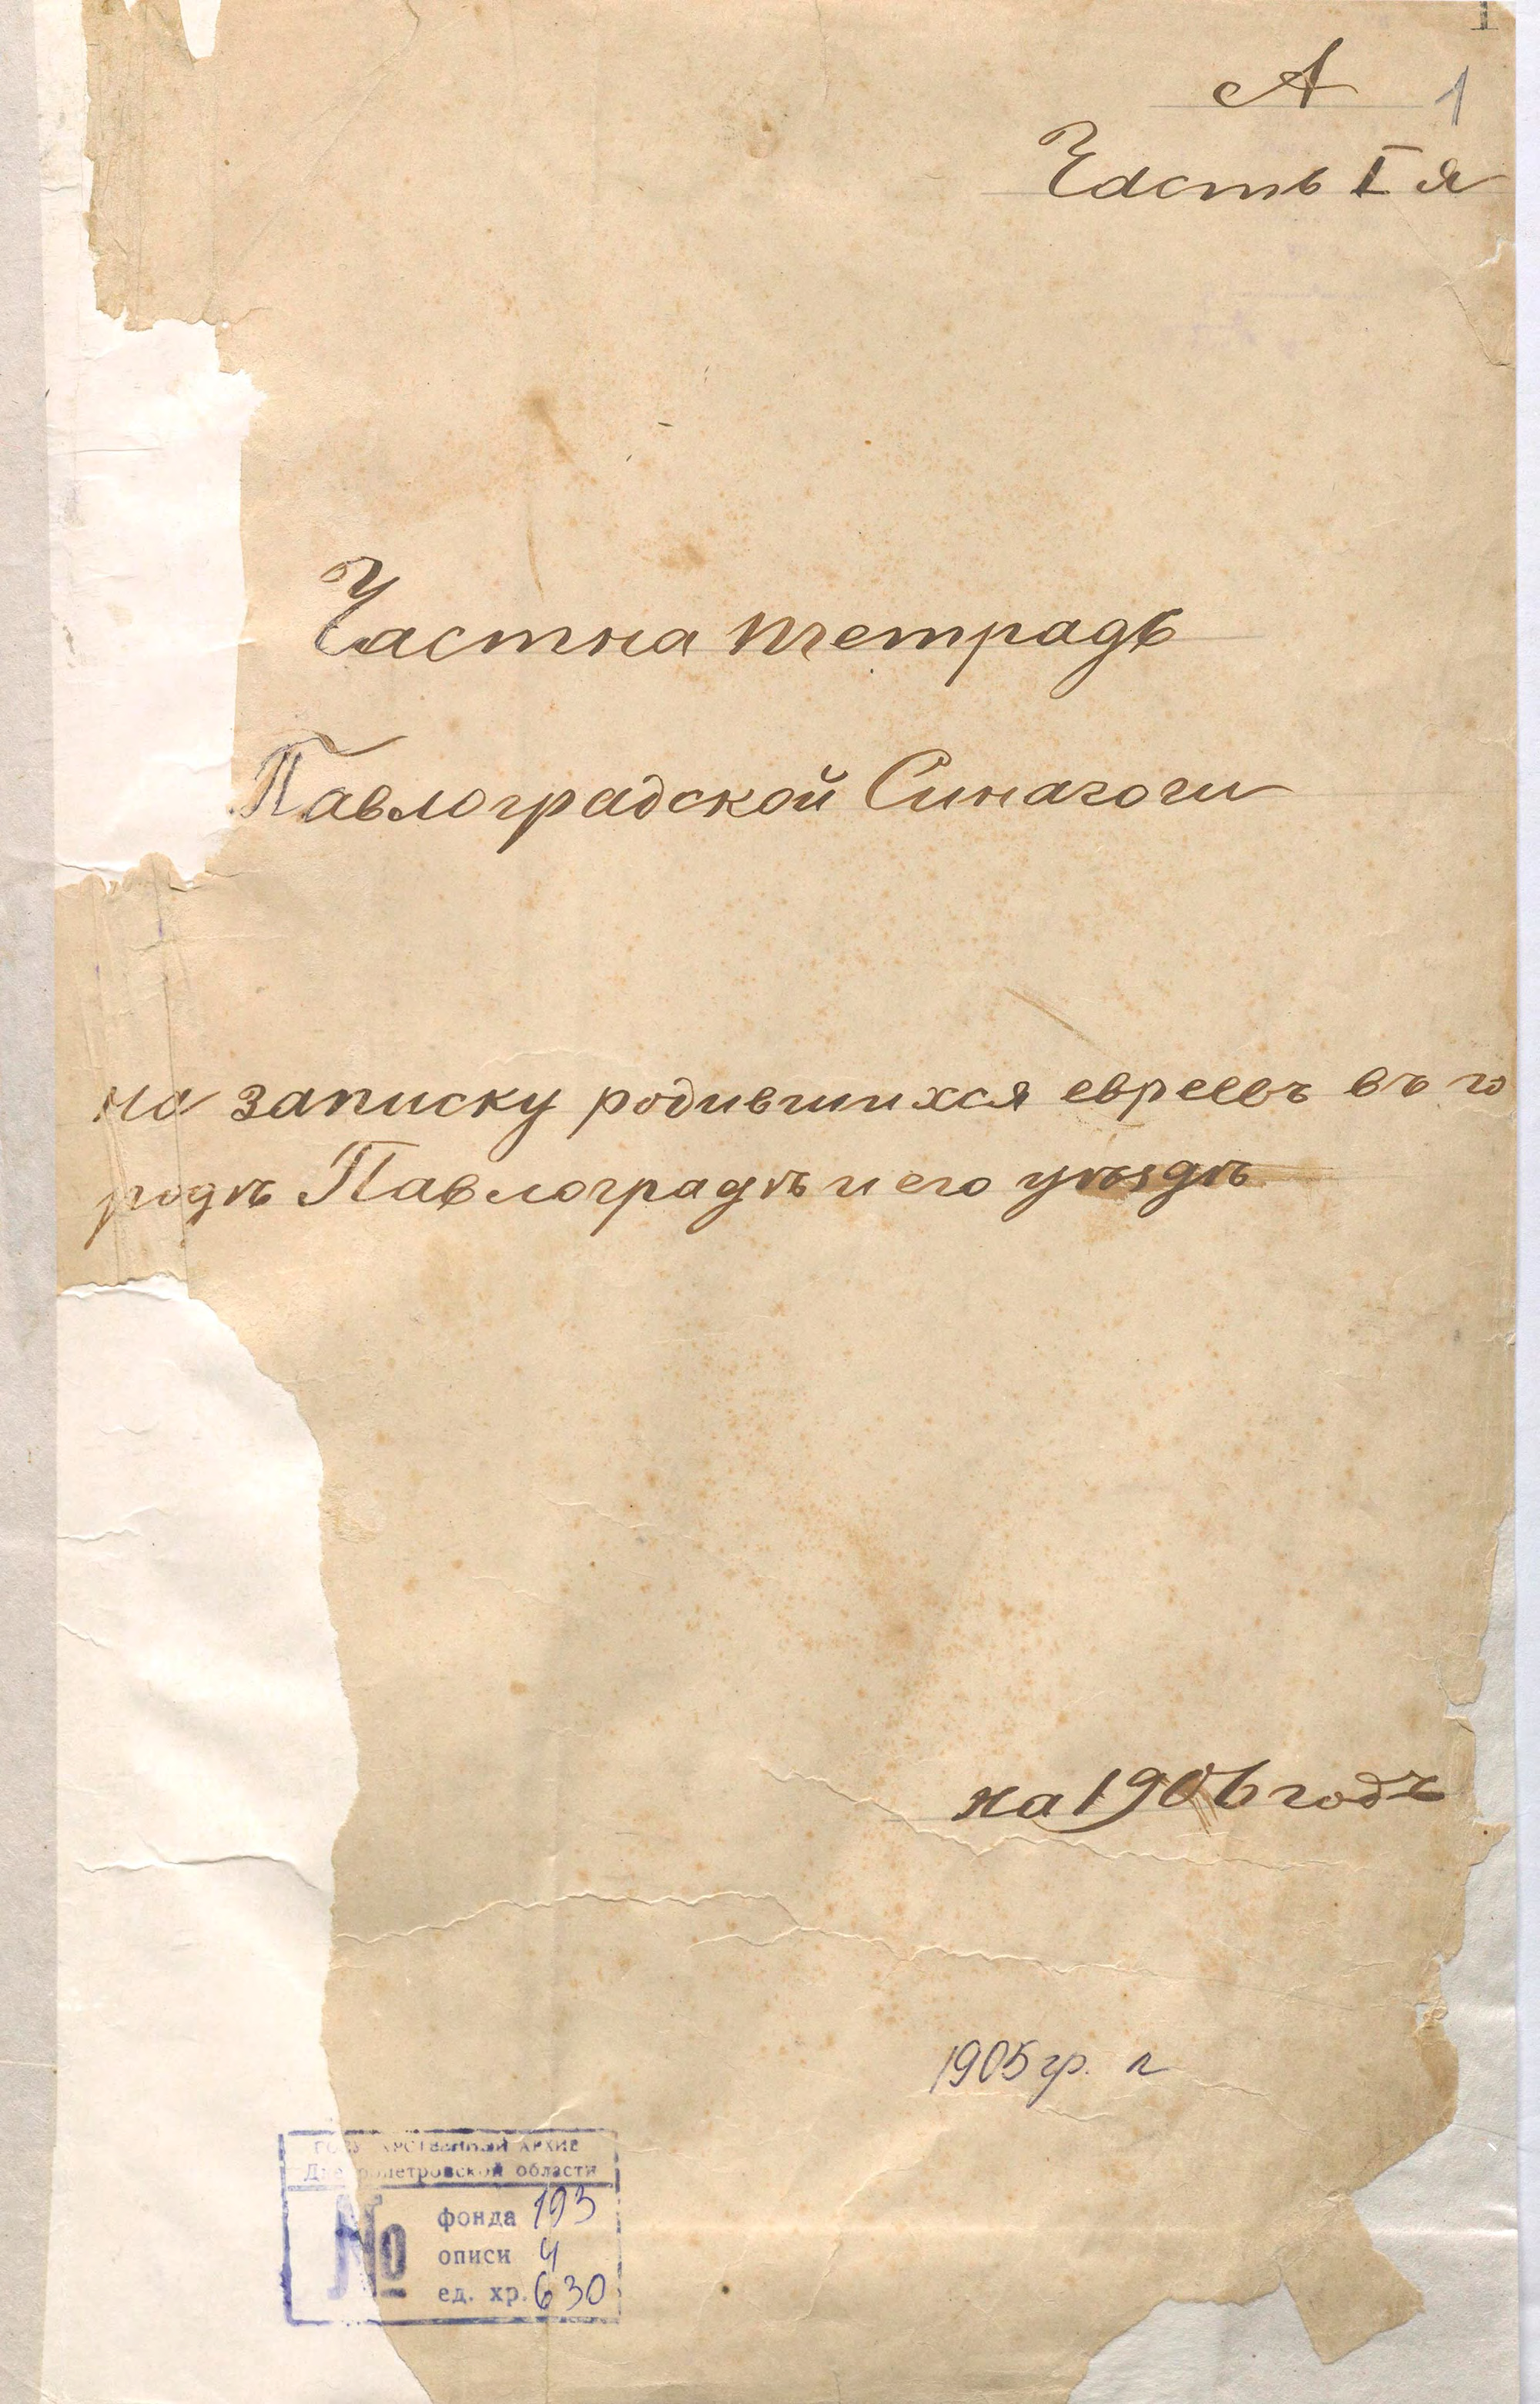 1
А 1
Часть I я
Частна тетрадь
Павлоградской Синагоги
на записку родившихся евреевъ въ го
родѣ Павлоградѣ и его уѣздѣ
на 1906 годъ
1905 гр. л
ГОСУДАРСТВЕННЫЙ АРХИВ
Днепропетровской области
№
фонда 193
описи 4
ед. хр. 630